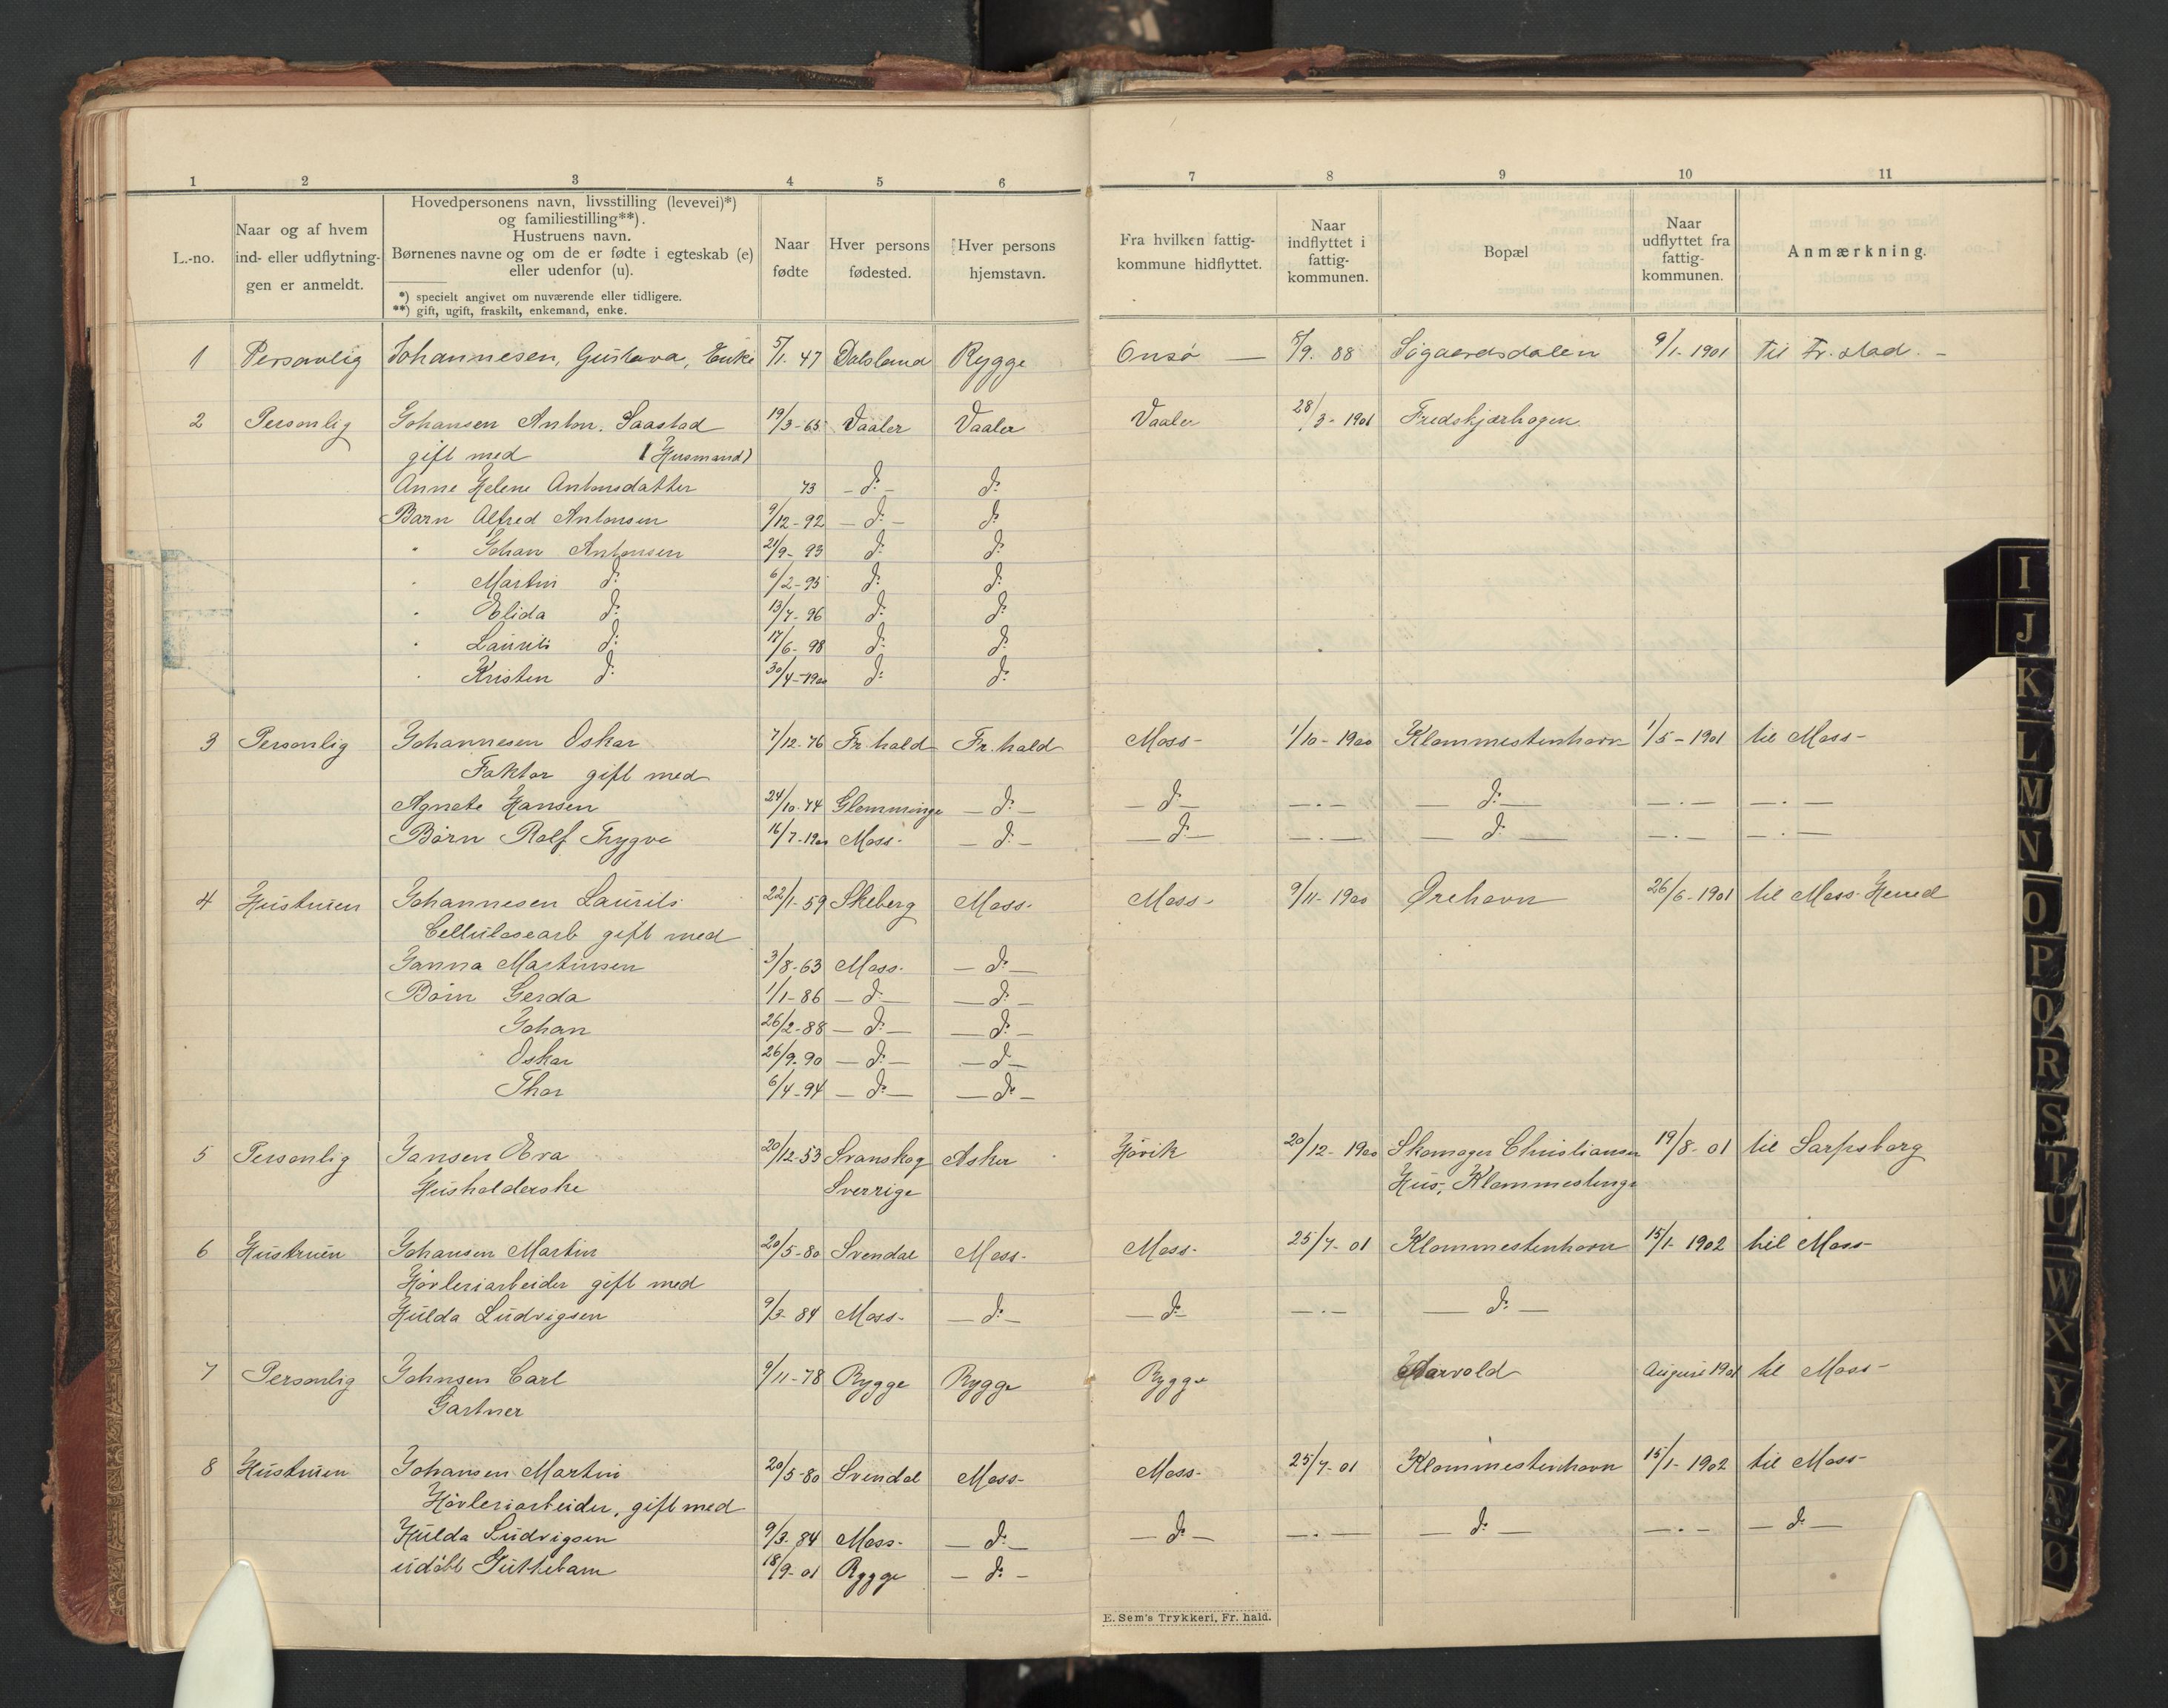 1 2 3 4 5 6 7 8 9 10 11
L.-no.
Naar og af hvem
ind- eller udflytnin-
gen er anmeldt.
Hovedpersonens navn, livsstilling (levevei)*)
og familiestilling**).
Hustruens navn.
Børnenes navne og om de er fødte i egteskab (e)
eller udenfor (u).
*) specielt angivet om nuværende eller tidligere.
**) gift, ugift, fraskilt, enkemand, enke.
Naar
fødte
Hver persons
fødested.
Hver persons
hjemstavn.
Fra hvilken fattig-
kommune hidflyttet.
Naar
indflyttet i
fattig-
kommunen.
Bopæl
Naar
udflyttet fra
fattig-
kommunen.
Anmærkning.
1 Personlig Johannesen, Gustava, Enke 5/1. 47 Dalsland Rygge Onsø — 8/9. 88 Sogaardsdalen 9/1-1901 Til Fr.stad. –
2 Personlig Johansen Anton. Saastad 19/3-65 Vaaler Vaaler Vaaler 28/3-1901 Fredskjærhogen
gift med (Husmand)
Anne Helene Antonsdatter 73 – do – do
Barn Alfred Antonsen 9/12-92 – do – do
" Johan Antonsen 21/9-93 do do
" Martin do 6/2-95 do do
" Elida do 13/7-96 do do
" Laurits do 17/6-98 do do
" Kristen do 30/4-1900 do do
3 Personlig Johannesen Oskar 7/12-76 Fr.hald Fr.hald Moss- 1/10-1900 Klommestenhavn 1/5-1901 til Moss-
Faktor gift med
Agnete Hansen 24/10-74 Glemminge – do – – do – – . – – do – – . – – . –
Børn Rolf Trygve 16/7-1900 Moss- – do – – do – – . – – do – – . – – . –
4 Hustruen Johannesen Laurits 22/1-59 Skeberg Moss- Moss- 9/11-1900 Ørehavn 26/6-1901 til Moss Herred
Cellulosearb gift med
Janna Martinsen 3/8-63 Moss- – do –
Børn Gerda 1/1-86 – do – – do –
Johan 26/2-88 – do – – do –
Oskar 26/9-90 – do – – do –
Thor 6/4-94 – do – – do –
5 Personlig Jansen Eva 20/12-53 Svanskog Asker Høvik 20/12-1900 Skomager Christiansen 19/8-01 til Sarpsborg
Husholderske Sverrige Hus, Klommestenge
6 Hustruen Johansen Martin 20/5-80 Svendal Moss- Moss- 25/7-01 Klommestenhavn 15/1-1902 til Moss-
Høvleriarbeider gift med
Hulda Ludvigsen 9/3-84 Moss- – do – – do – – . – – do –
7 Personlig Johnsen Carl 9/11-78 Rygge Rygge Rygge Varvold August 1901 til Moss-
Gartner
8 Hustruen Johansen Martin 20/5-80 Svendal Moss- Moss- 25/7-01 Klommestenhavn 15/1-1902 til Moss-
Høvleriarbeider, gift med
Hulda Ludvigsen 9/3-84 Moss- – do – – do – – . – – do – – . – – do –
udøbt Guttebarn 18/9-01 Rygge – do –
E. Sem's Trykkeri, Fr. hald.
I
J
K
L
M
N
O
P
Q
R
S
T
U
W
X
Y
Z
Æ
Ø